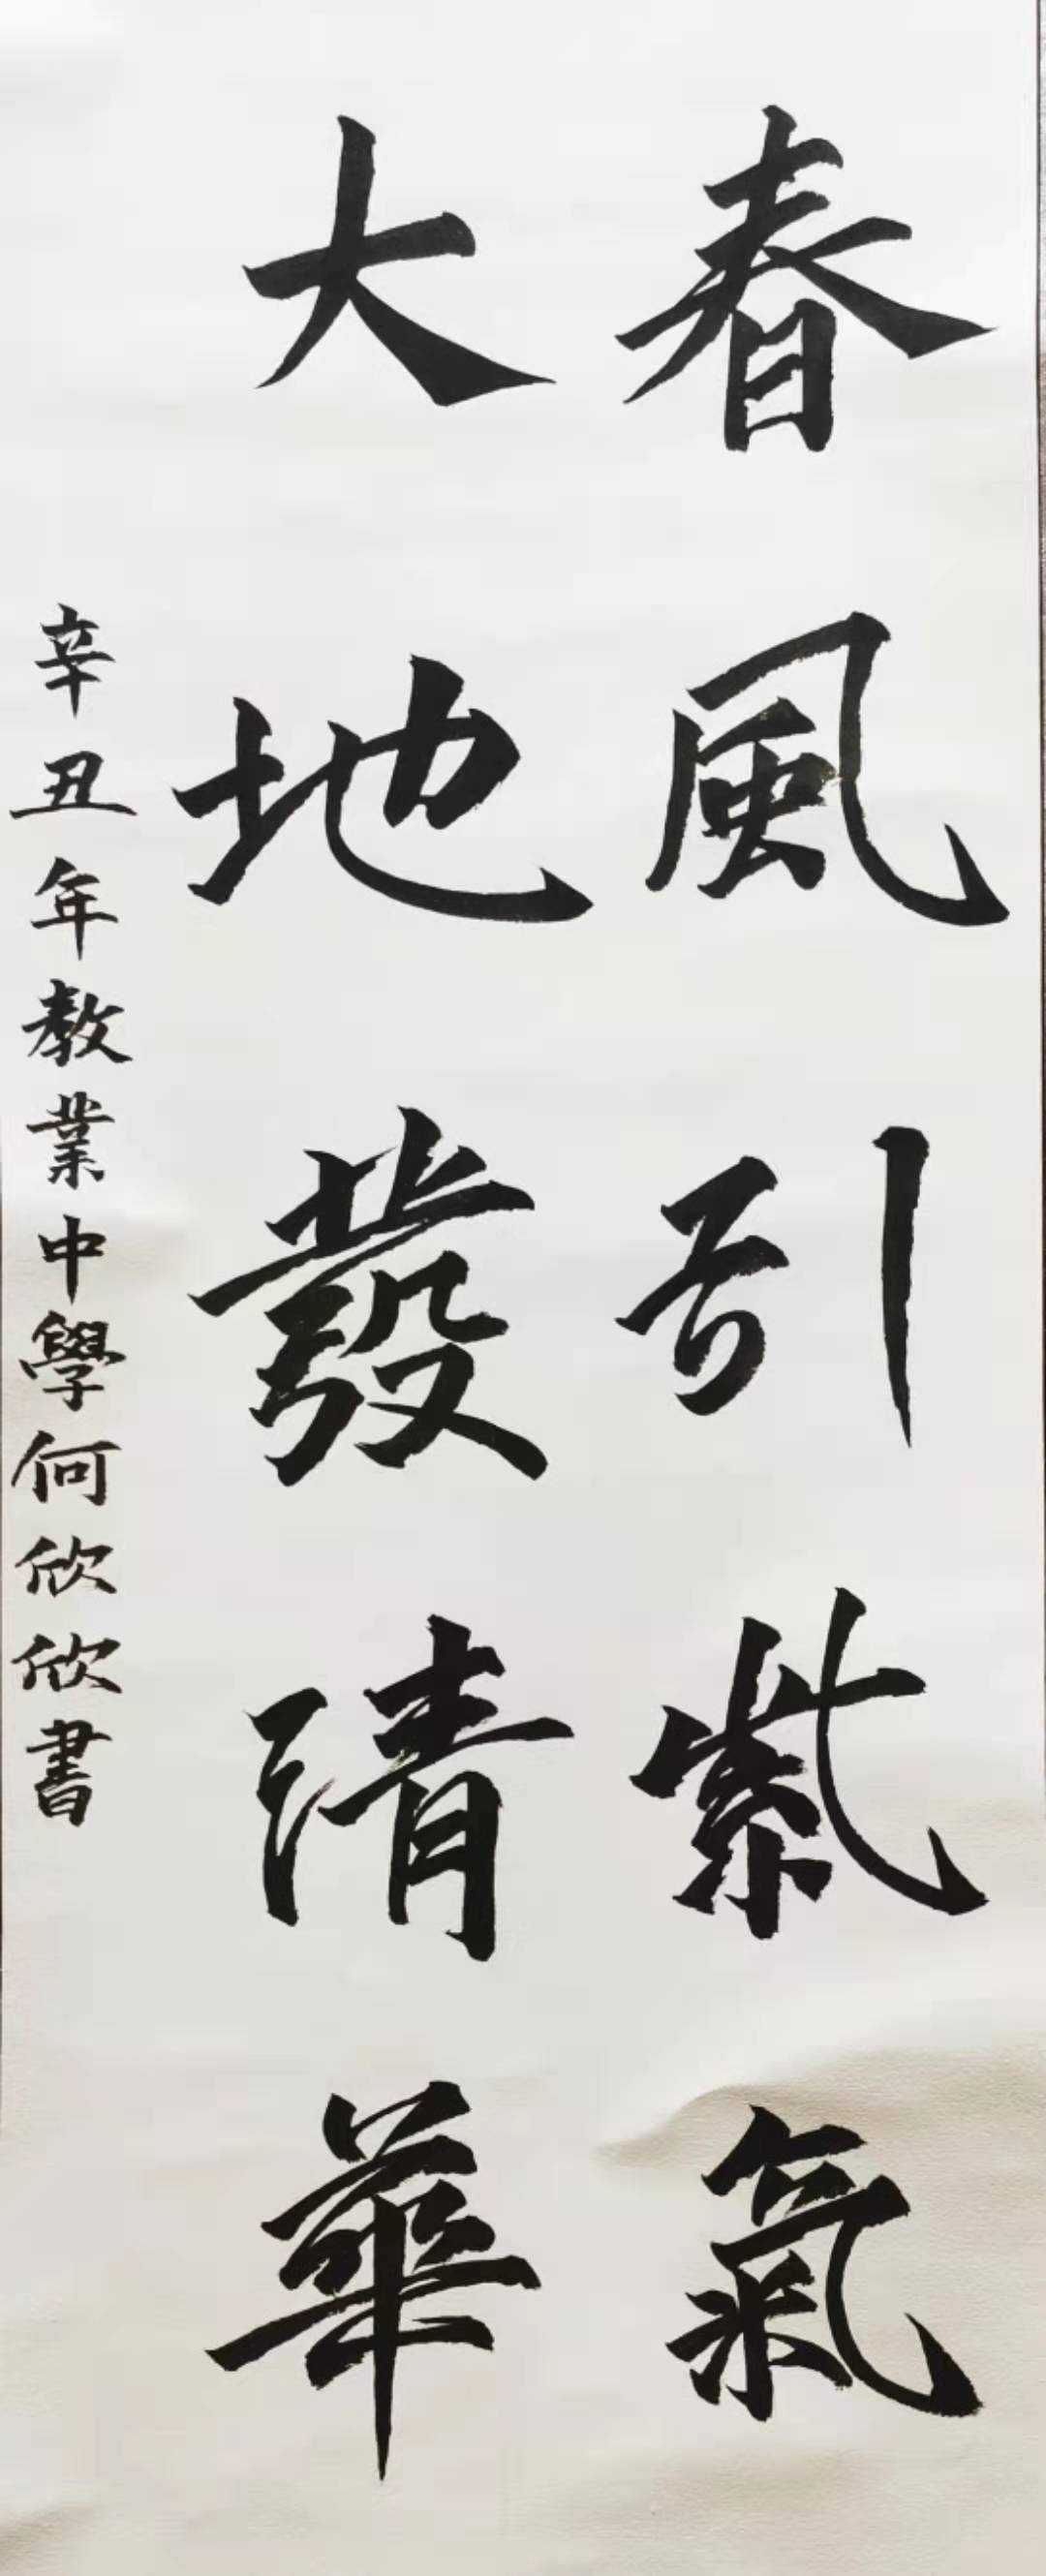 春風引紫氣
大地發清華
辛丑年教業中學何欣欣書